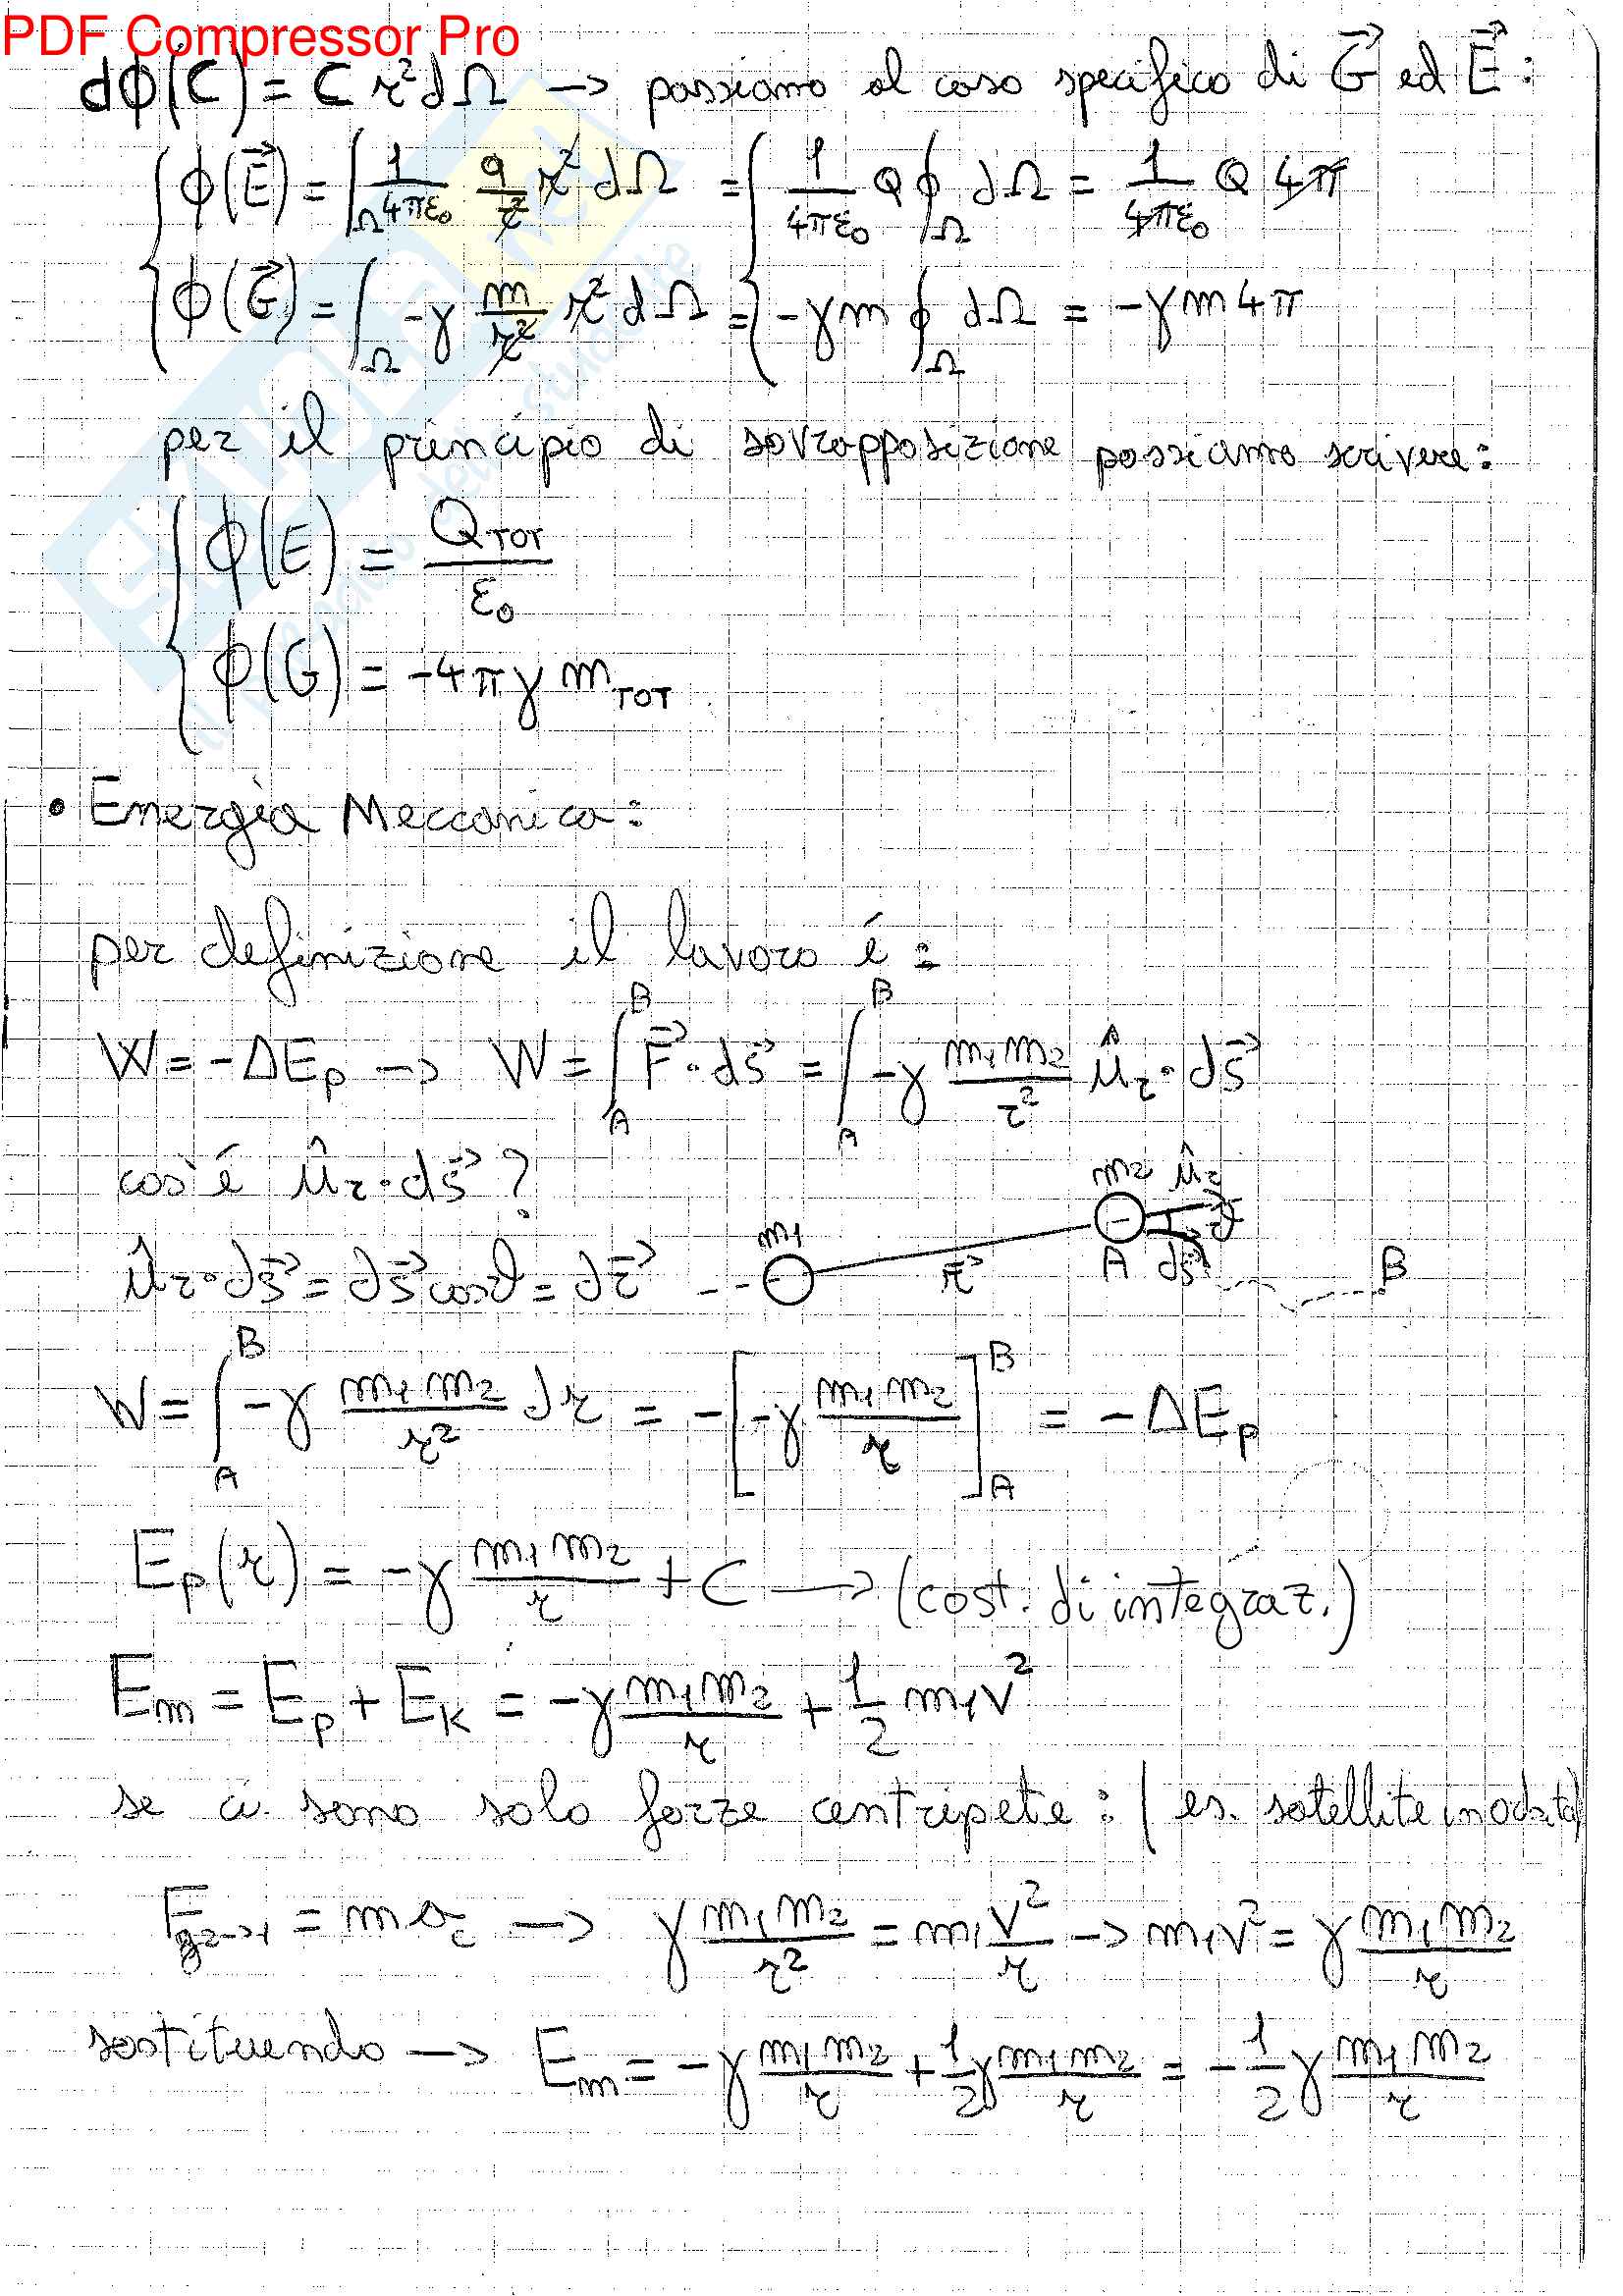 PDF Compressor Pro
dϕ(C) = C r² dΩ → passiamo al caso specifico di G⃗ ed E⃗ :
ϕ(E⃗) = ∫_Ω 1/(4πε₀) q/r² r² dΩ = { 1/(4πε₀) Q ∮_Ω dΩ = 1/(4πε₀) Q 4π
ϕ(G⃗) = ∫_Ω -γ m/r² r² dΩ = { -γm ∮_Ω dΩ = -γm4π
per il principio di sovrapposizione possiamo scrivere:
ϕ(E) = Q_TOT/ε₀
ϕ(G) = -4πγ m_TOT
• Energia Meccanica:
per definizione il lavoro é :
W = -ΔE_p → W = ∫_A^B F⃗·ds⃗ = ∫_A^B -γ m₁m₂/r² û_r·ds⃗
cos'é û_r·ds⃗ ?
m₂ û_r
m₁ ϑ
û_r·ds⃗ = ds⃗cosϑ = dr⃗
r⃗ A ds⃗ B
W = ∫_A^B -γ m₁m₂/r² dr = -[-γ m₁m₂/r]_A^B = -ΔE_p
E_p(r) = -γ m₁m₂/r + C → (cost. di integraz.)
E_m = E_p + E_k = -γ m₁m₂/r + 1/2 m₁v²
se ci sono solo forze centripete : (es. satellite in orbita)
F_g2→1 = m a_c → γ m₁m₂/r² = m₁ v²/r → m₁v² = γ m₁m₂/r
sostituendo → E_m = -γ m₁m₂/r + 1/2 γ m₁m₂/r = -1/2 γ m₁m₂/r